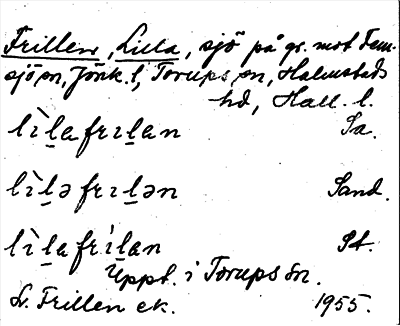 Frillen, Lilla, sjö på gr. mot Fem-
sjö sn, Jönk. l, Torups sn, Halmstads
hd, Hall. l.
lìḻafrɪḻan Sa.
lìḻəfrɪḻən Sand.
lìḻafrɪ́ḻan St.
Uppt. i Torups sn.
L. Frillen ek. 1955.